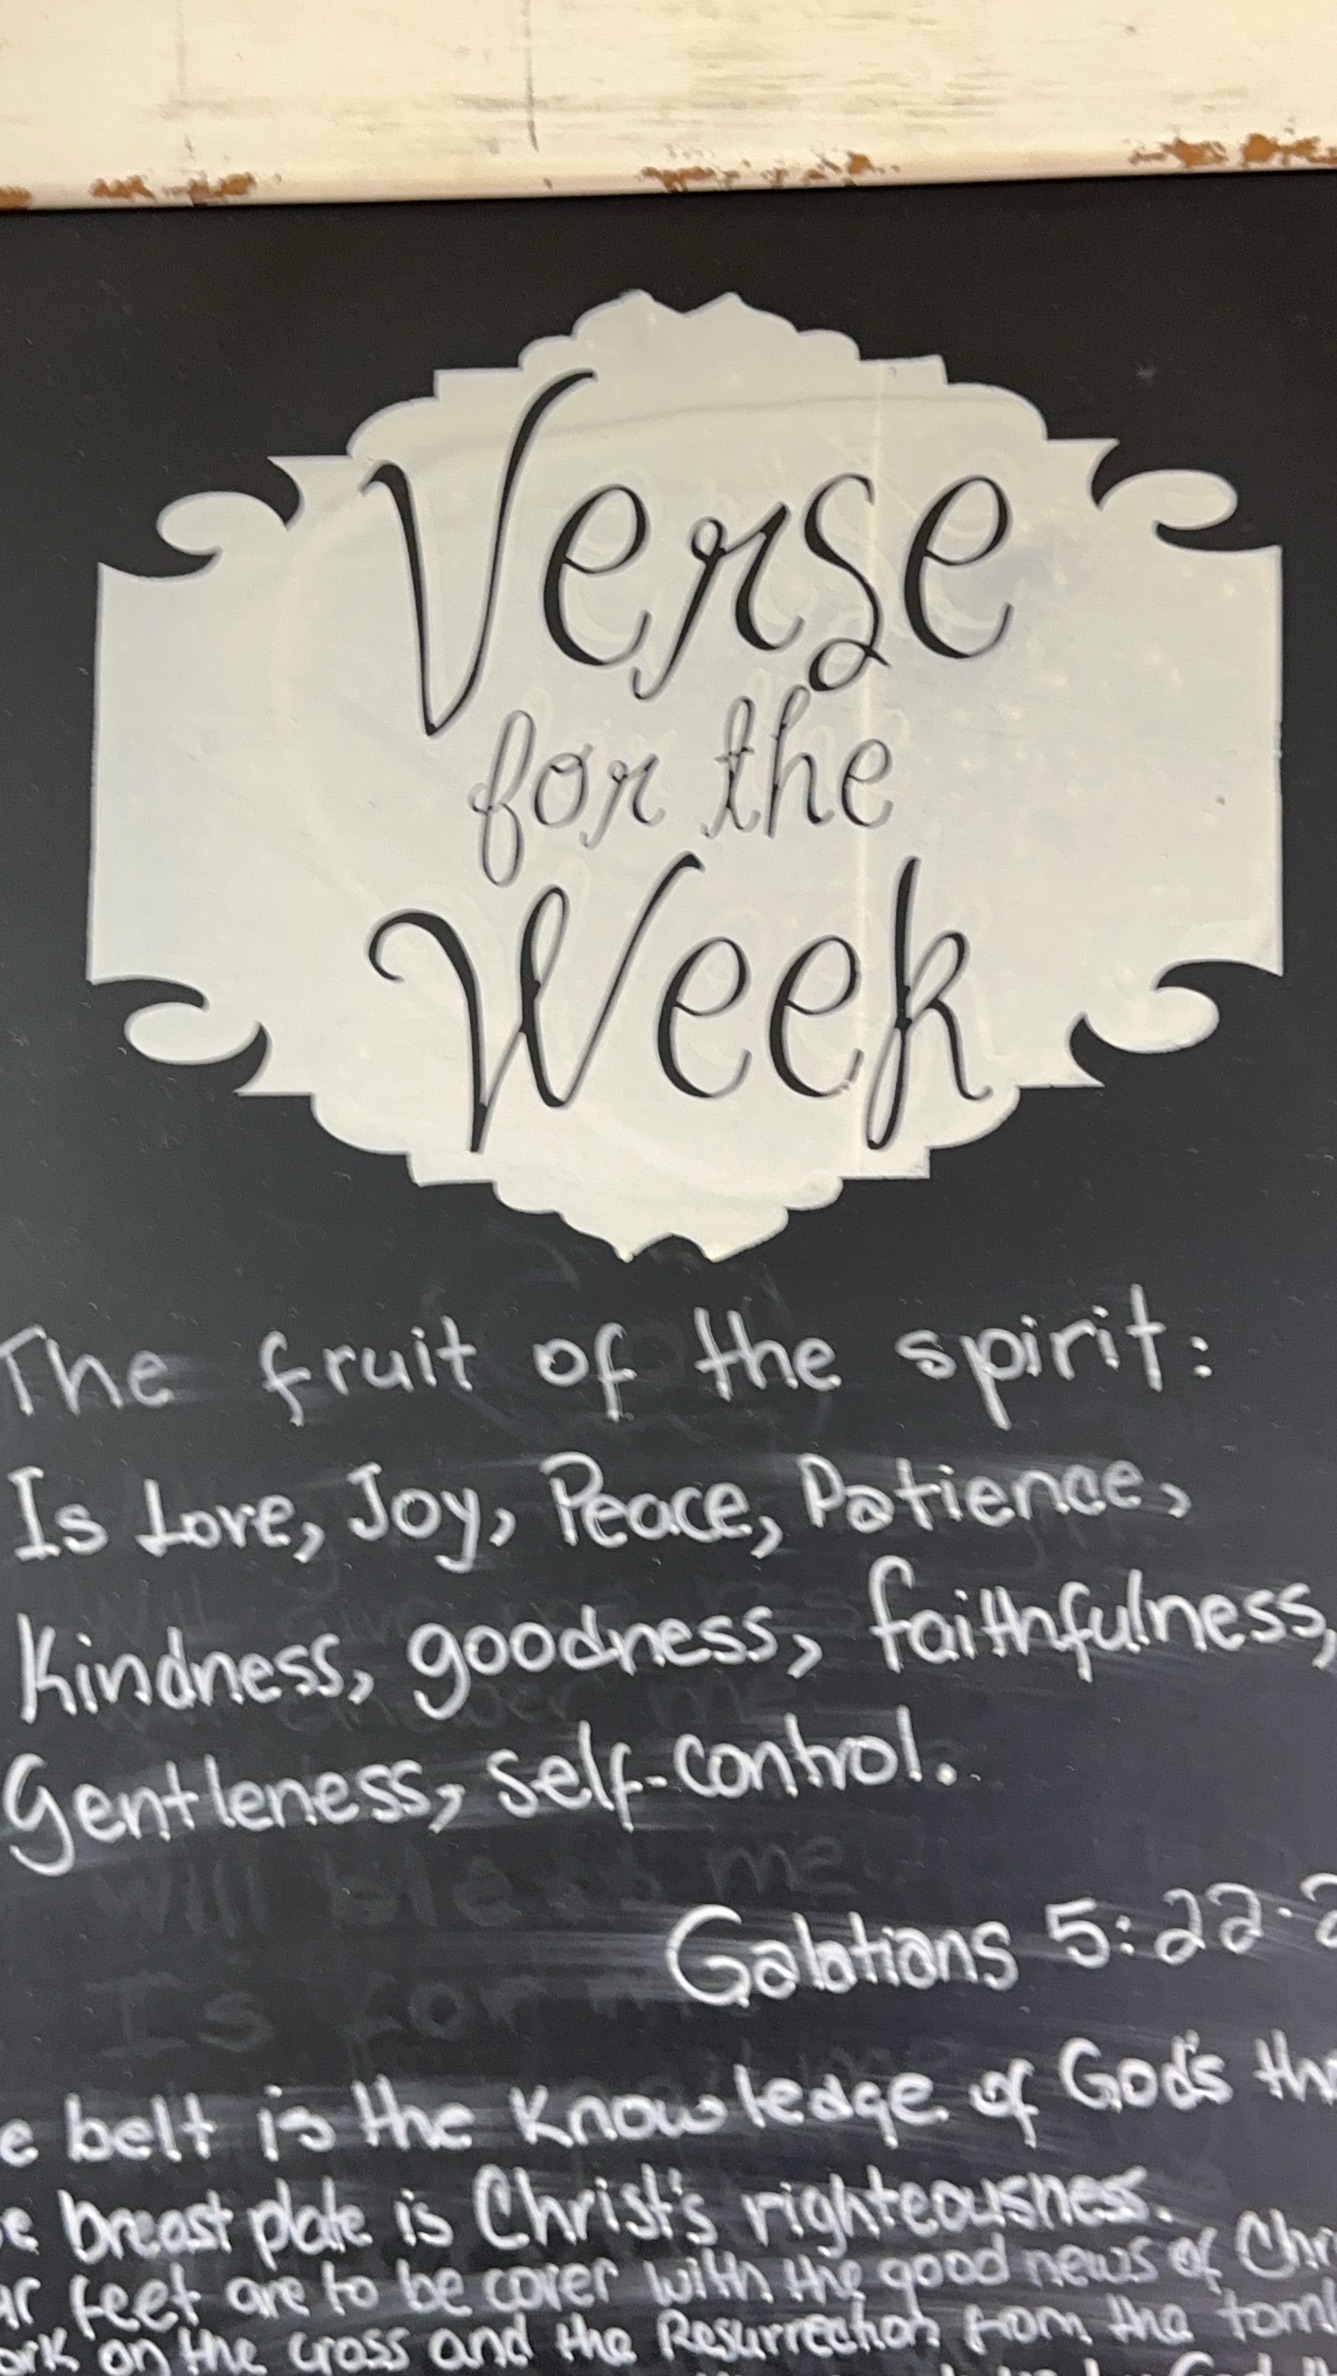 Verse
for the
Week
The fruit of the spirit:
Is Love, Joy, Peace, Patience,
Kindness, goodness, faithfulness,
Gentleness, self-control.
Galatians 5:22-2
e belt is the Knowledge of God's
breast plate is Christ's righteousness.
feet are to be cover with the good news of
on the cross and the Resurrection from the